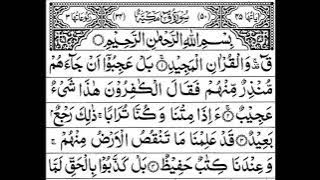 اٰيَاتُهَا ٤٥ (٥٠) سُوْرَةُ قٓ مَكِّيَّةٌ (٣٤) رُكُوْعَاتُهَا ٣
بِسْمِ اللّٰهِ الرَّحْمٰنِ الرَّحِيْمِ ۝
قٓ ۚ وَالْقُرْاٰنِ الْمَجِيْدِ ۝ بَلْ عَجِبُوْۤا اَنْ جَآءَهُمْ
مُّنْذِرٌ مِّنْهُمْ فَقَالَ الْكٰفِرُوْنَ هٰذَا شَيْءٌ
عَجِيْبٌ ۝ ءَاِذَا مِتْنَا وَكُنَّا تُرَابًا ۚ ذٰلِكَ رَجْعٌۢ
بَعِيْدٌ ۝ قَدْ عَلِمْنَا مَا تَنْقُصُ الْاَرْضُ مِنْهُمْ ۚ
وَعِنْدَنَا كِتٰبٌ حَفِيْظٌ ۝ بَلْ كَذَّبُوْا بِالْحَقِّ لَمَّا